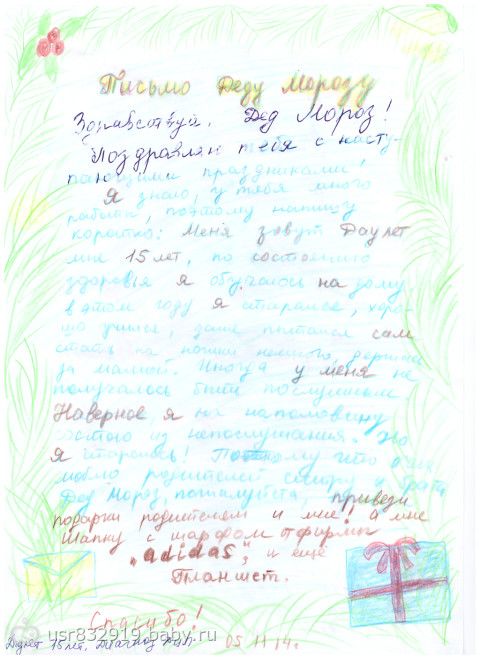 Письмо Деду Морозу
Здравствуй, Дед Мороз!
Поздравляю тебя с насту-
пающими праздниками!
Я знаю, у тебя много
работы, поэтому напишу
коротко: Меня зовут Даулет
мне 15 лет, по состоянию
здоровья я обучаюсь на дому
в этом году я старался, хоро-
шо учился, даже пытался сам
стать на ножки немного, держась
за малой. Иногда у меня не
получалось быть послушным
Наверное я на наполовину
состою из непослушания. Но
я старалсь! Потому что очень
люблю родителей сестру и брата
Дед Мороз, пожалуйста, привези
подарки родителям и мне! а мне
шапку с шарфом фирмы
"adidas", и ещё
Планшет.
Спасибо!
usr832919.baby.ru
Даулет 15 лет, Диагноз 05 11 14г.